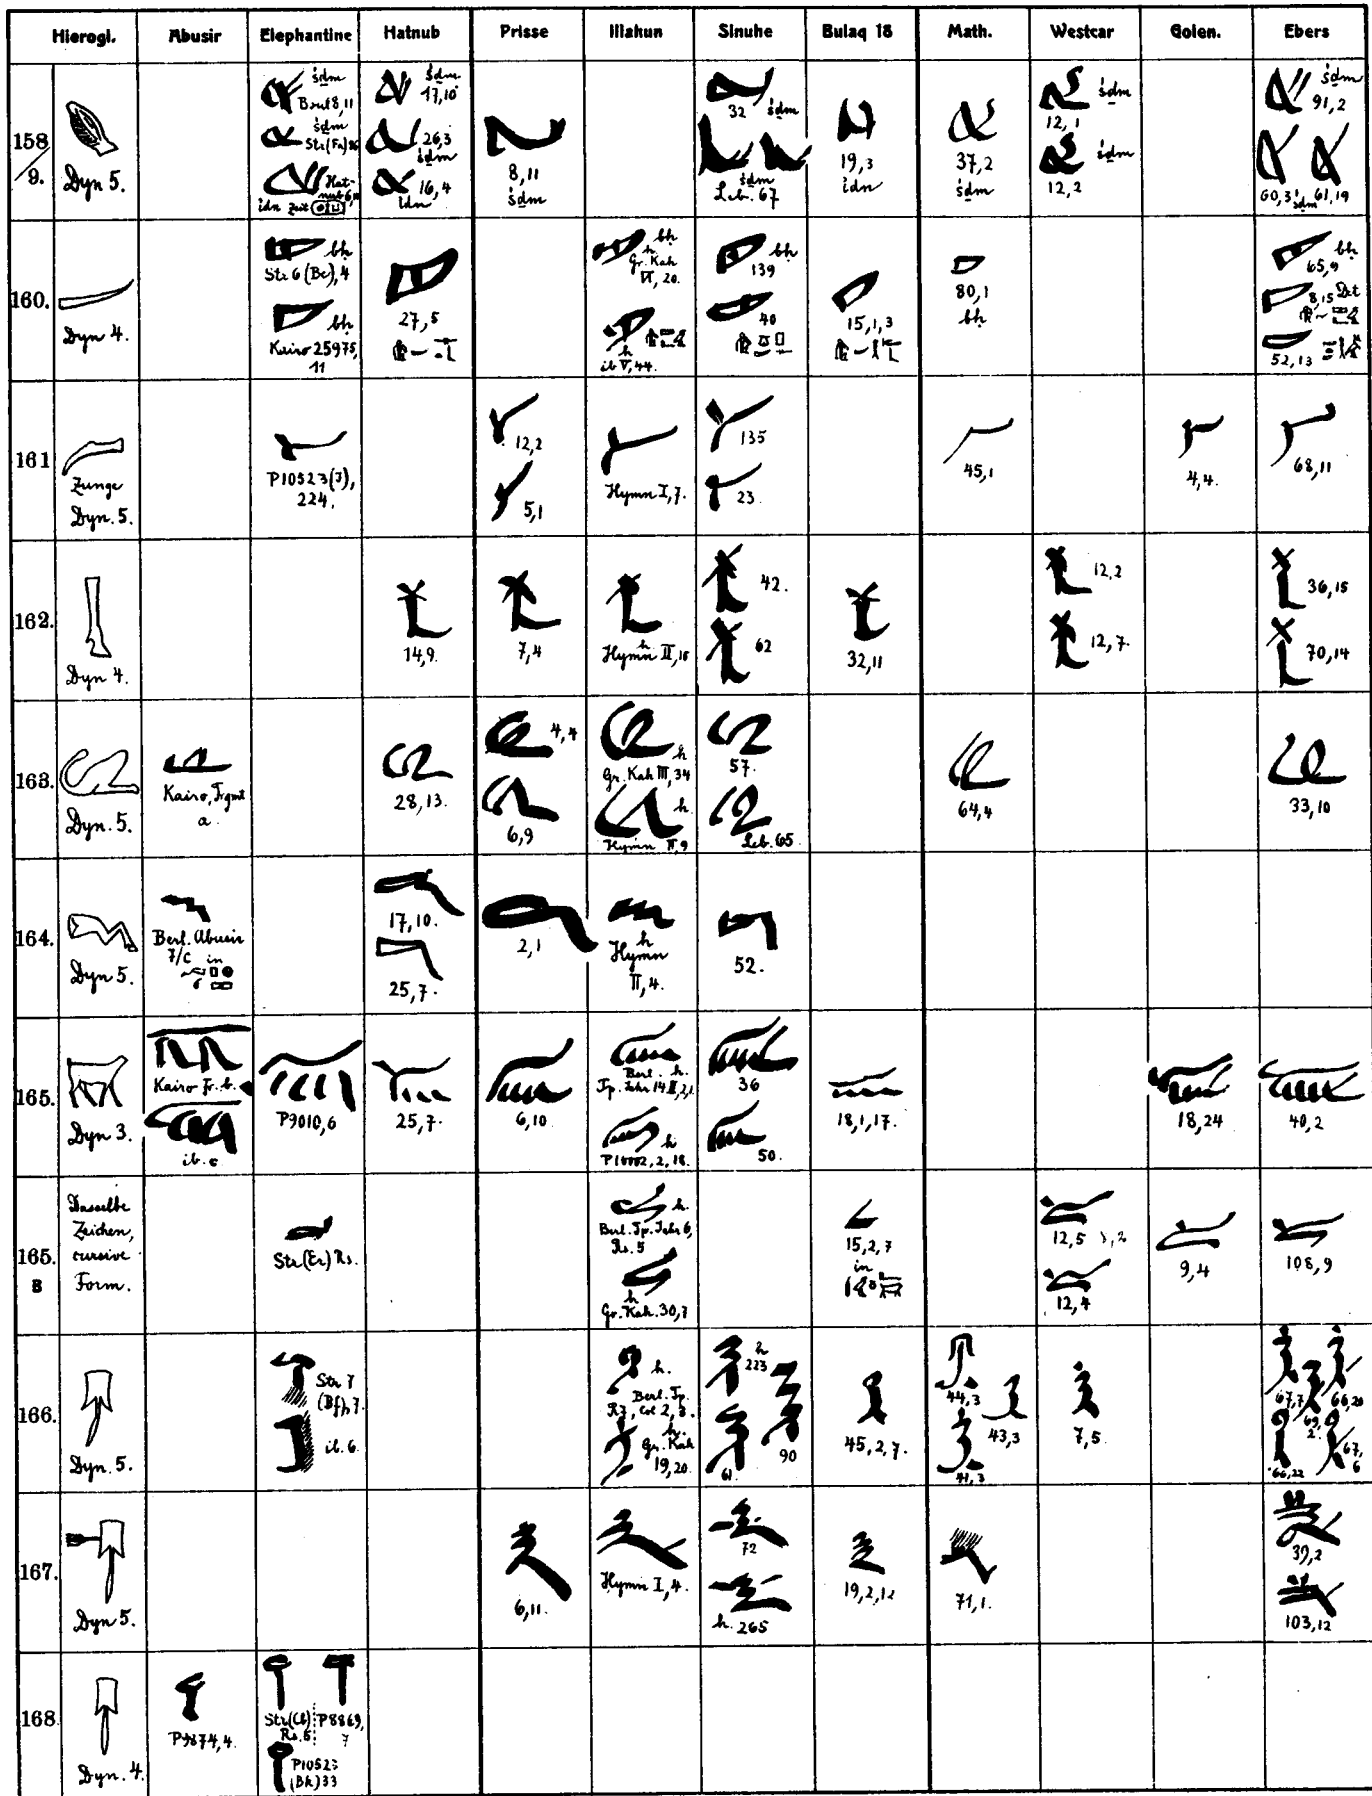 Hierogl. Abusir Elephantine Hatnub Prisse Illahun Sinuhe Bulaq 18 Math. Westcar Golen. Ebers
158/9.
Dyn 5.
śdm
Brit 8,11
śdm
idn Zeit
śdm
17,10
26,3
śdm
16,4
idn
8,11
śdm
32 śdm
śdm
Leb. 67
19,3
idn
37,2
śdm
śdm
12,1
śdm
12,2
śdm
91,2
60,3 śdm 61,19
160.
Dyn 4.
bḥ
Str 6 (Bc), 4
bḥ
Kairo 25975,
11
27,5
bḥ
h
Gr. Kah
VI, 20.
h
ib V, 44.
bḥ
139
40
15,1,3
80,1
bḥ
bḥ
65,9
8,15 Det
52,13
161
Zunge
Dyn. 5.
P10523(J),
224.
12,2
5,1
Hymn I, 7.
135
23.
45,1
4,4.
68,11
162.
Dyn 4.
14,9.
7,4
h
Hymn II, 15
42.
62
32,11
12,2
12,7.
36,15
70,14
163.
Dyn. 5.
Kairo, Frgmt
a.
28,13.
4,4
6,9
h
Gr. Kah III, 34
h.
Hymn II, 9
57.
Leb. 65
64,4
33,10
164.
Dyn 5.
Berl. Abusir
7/C in
17,10.
25,7.
2,1
h
Hymn
II, 4.
52.
165.
Dyn 3.
Kairo Fr. b.
ib. c
P9010,6
25,7.
6,10
Berl. h.
Tp. Jahr 14 II, 2,1
h
P10002,2,18.
36
50.
18,1,17.
18,24
40,2
165.
B
Dasselbe
Zeichen,
cursive
Form.
Str(Er) Rs.
h.
Berl. Tp. Jahr 6,
Rs. 5
h
Gr. Kah. 30,7
15,2,7
in
12,5
12,4
9,4
108,9
166.
Dyn. 5.
Str 7
(Bf), 7.
ib. 6.
h.
Berl. Tp.
R7, Col 2, 3.
h.
Gr. Kah
19,20.
h
223
61.
90
45,2,7.
44,3
43,3
41,3
7,5.
67,7
66,20
69,
2.
66,22
67,
6
167.
Dyn 5.
6,11.
Hymn I, 4.
72
h. 265
19,2,12
71,1.
39,2
103,12
168
Dyn. 4.
P9874,4.
Str(Cb)
Rs. 5
P8869,
7
P10523
(Bk) 33